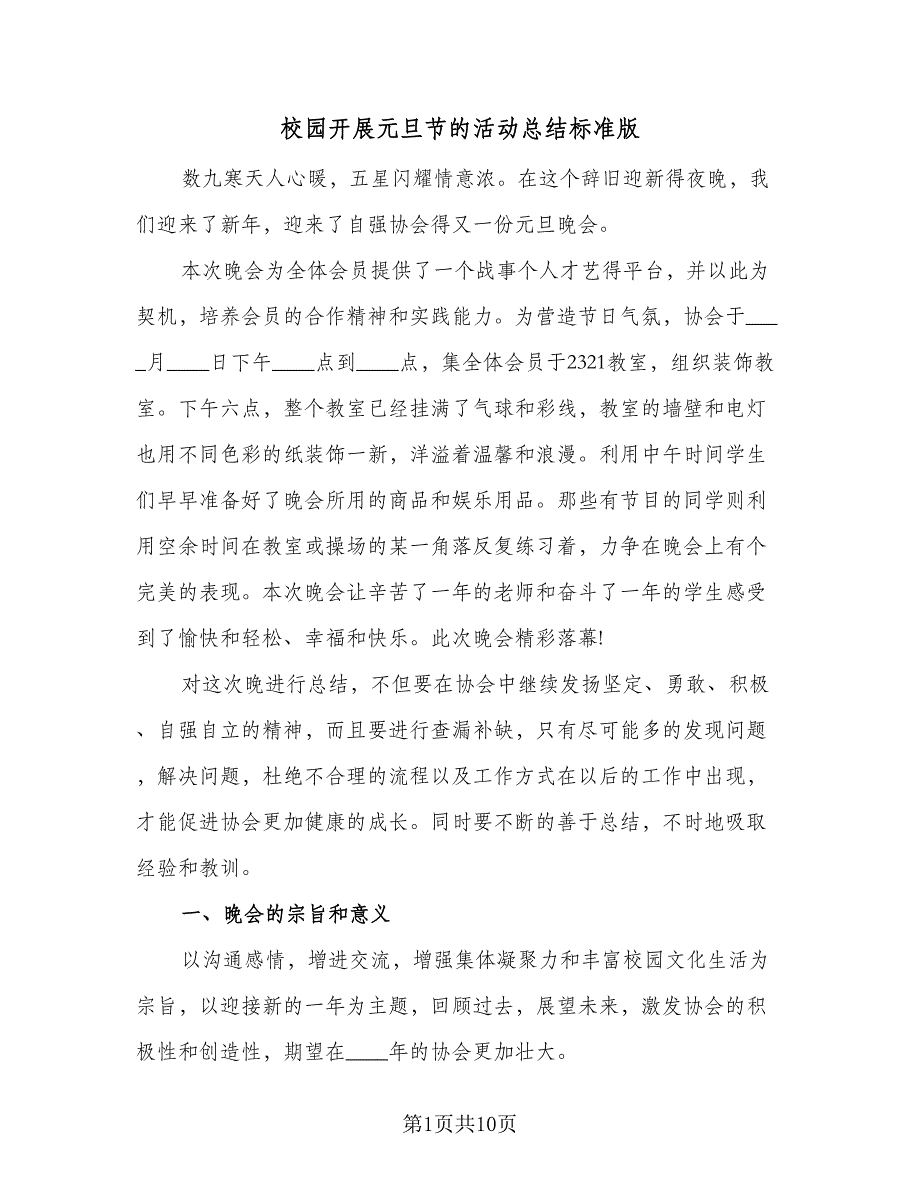 校园开展元旦节的活动总结标准版
数九寒天人心暖，五星闪耀情意浓。在这个辞旧迎新得夜晚，我
们迎来了新年，迎来了自强协会得又一份元旦晚会。
本次晚会为全体会员提供了一个战事个人才艺得平台，并以此为
契机，培养会员的合作精神和实践能力。为营造节日气氛，协会于___
_月____日下午____点到____点，集全体会员于2321教室，组织装饰教
室。下午六点，整个教室已经挂满了气球和彩线，教室的墙壁和电灯
也用不同色彩的纸装饰一新，洋溢着温馨和浪漫。利用中午时间学生
们早早准备好了晚会所用的商品和娱乐用品。那些有节目的同学则利
用空余时间在教室或操场的某一角落反复练习着，力争在晚会上有个
完美的表现。本次晚会让辛苦了一年的老师和奋斗了一年的学生感受
到了愉快和轻松、幸福和快乐。此次晚会精彩落幕!
对这次晚进行总结，不但要在协会中继续发扬坚定、勇敢、积极
、自强自立的精神，而且要进行查漏补缺，只有尽可能多的发现问题
，解决问题，杜绝不合理的流程以及工作方式在以后的工作中出现，
才能促进协会更加健康的成长。同时要不断的善于总结，不时地吸取
经验和教训。
一、晚会的宗旨和意义
以沟通感情，增进交流，增强集体凝聚力和丰富校园文化生活为
宗旨，以迎接新的一年为主题，回顾过去，展望未来，激发协会的积
极性和创造性，期望在____年的协会更加壮大。
第1页共10页